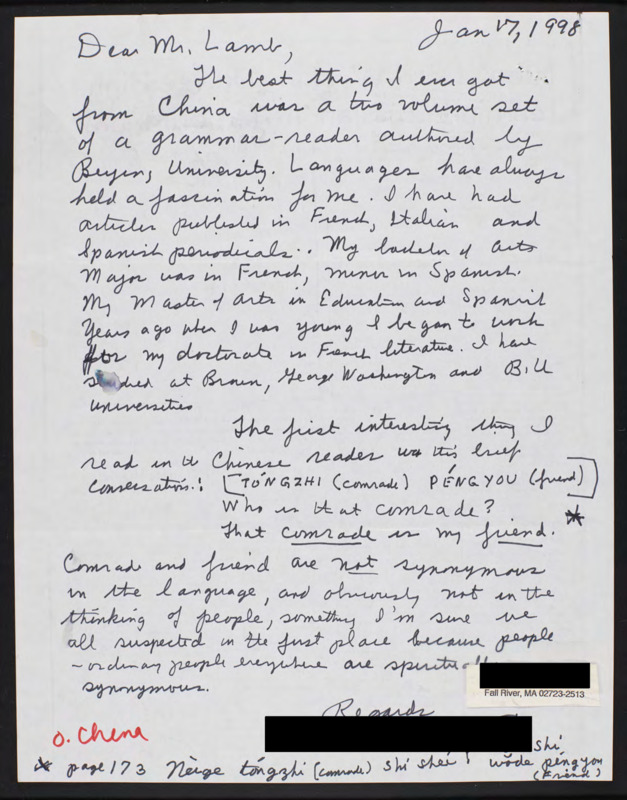 Jan 17, 1998
Dear Mr. Lamb,
The best thing I ever got
from China was a two volume set
of a grammar-reader authored by
University. Languages have always
held a fascination for me. I have had
articles published in French, Italian and
Spanish periodicals.. My bachelor of arts
Major was in French, minor in Spanish.
My Master of Arts in Education and Spanish
Years ago when I was young I began to work
for my doctorate in French literature. I have
studied at Brown, George Washington and
Universities
The first interesting thing I
read in the Chinese reader was this brief
conversation: [TÓNGZHI (comrade) PÉNGYOU (friend)]
Who is that comrade? *
That comrade is my friend.
Comrade and friend are not synonymous
in the language, and obviously not in the
thinking of people, something I'm sure we
all suspected in the first place because people
- ordinary people everywhere are
synonymous.
Fall River, MA 02723-2513
Regards
O. China
* page 173 Nèige tóngzhi (comrade) shi shéi? shi
wǒde péngyou
(friend)